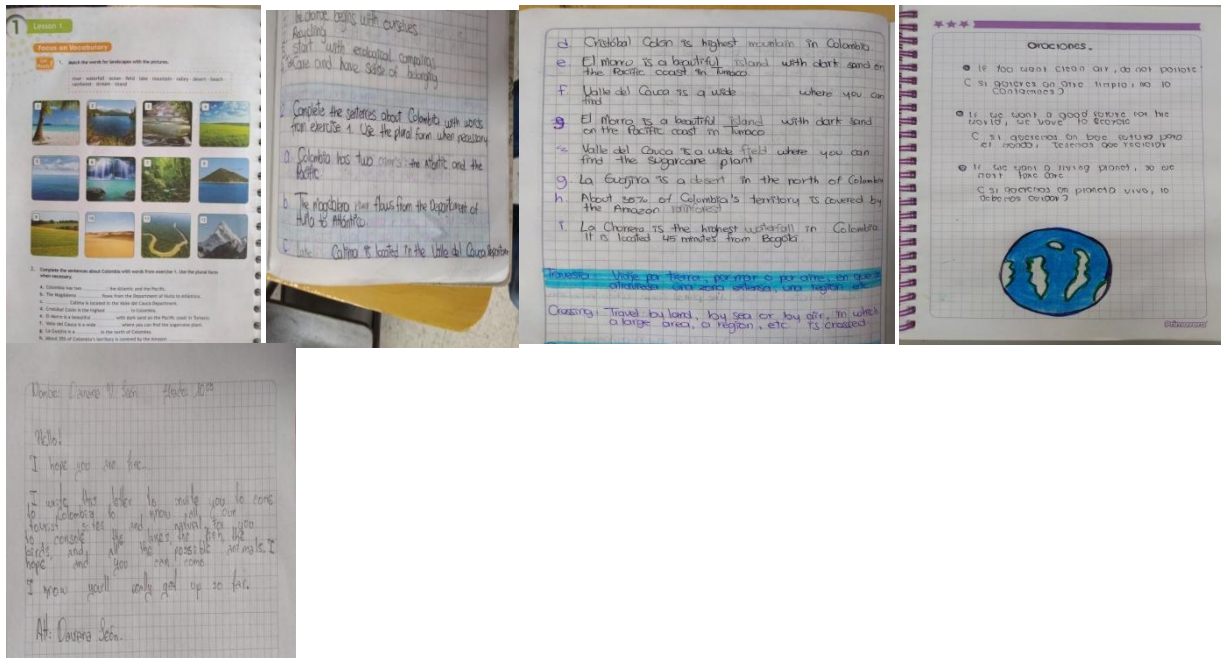 1 Lesson 1
Focus on Vocabulary
1. Match the words for landscapes with the pictures.
river waterfall ocean field lake mountain valley desert beach
rainforest stream island
2. Complete the sentences about Colombia with words from exercise 1. Use the plural form
when necessary.
a. Colombia has two : the Atlantic and the Pacific.
b. The Magdalena flows from the Department of Huila to Atlántico.
c. Calima is located in the Valle del Cauca Department.
d. Cristóbal Colón is the highest in Colombia.
e. El Morro is a beautiful with dark sand on the Pacific coast in Tumaco.
f. Valle del Cauca is a wide where you can find the sugarcane plant.
g. La Guajira is a in the north of Colombia.
h. About 35% of Colombia's territory is covered by the Amazon
begins with ourselves
Recycling
Start with ecological campaigns
Care and have sense of belonging
2. Complete the sentences about Colombia with words
from exercise 1. Use the plural form when necessary
a. Colombia has two : the Atlantic and the
Pacific.
b. The Magdalena river flows from the Department of
Huila to Atlántico.
c. Calima is located in the Valle del Cauca
d. Cristóbal Colón is highest mountain in Colombia
e. El Morro is a beautiful island with dark sand on
the Pacific coast in Tumaco.
f. Valle del Cauca is a wide where you can
find
g. El Morro is a beautiful island with dark sand
on the Pacific coast in Tumaco
Valle del Cauca is a wide field where you can
find the sugarcane plant
g. La Guajira is a desert in the north of Colombia
h. About 35% of Colombia's territory is covered by
the Amazon rainforest
i. La Chorrera is the highest waterfall in Colombia.
It is located 45 minutes from Bogotá
Travesía: Viaje por tierra, por mar o por aire, en que se
atraviesa una zona extensa, una región etc
Crossing: Travel by land, by sea or by air, in which
a large area, a region, etc is crossed.
Oraciones.
If you want clean air, do not pollute
( si quieres un aire limpio, no lo
contamines)
If we want a good future for the
world, we have to recycle
( si queremos un buen futuro para
el mundo, tenemos que reciclar
If we want a living planet, so we
must take care
( si queremos un planeta vivo, lo
debemos cuidar)
Primavera
Nombre: León Grado: 10
Hello!
I hope you are fine.
I write this letter to invite you to come
to Colombia to know all our
tourist sites and natural for you
to the lakes, the fish, the
birds, and all the possible animals. I
hope and you can come
I know you'll really get up so far.
Att: León.